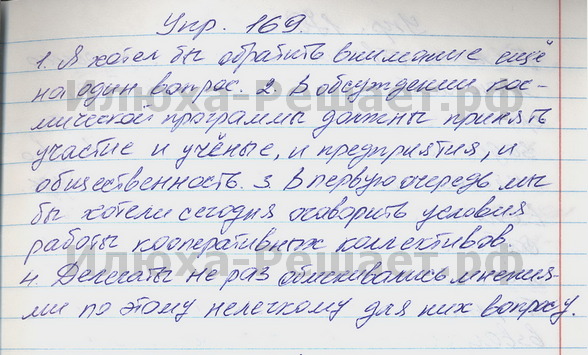 Упр. 169.
1. Я хотел бы обратить внимание ещё
на один вопрос. 2. В обсуждении кос-
мической программы должны принять
участие и учёные, и предприятия, и
общественность. 3. В первую очередь мы
бы хотели сегодня оговорить условия
работы кооперативных коллективов.
4. Делегаты не раз обменивались мнения-
ми по этому нелегкому для них вопросу.
Илюха-Решает.рф
Илюха-Решает.рф